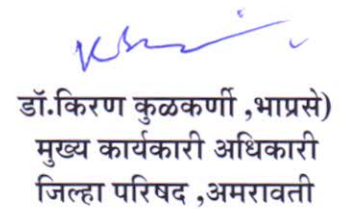 डॉ.किरण कुळकर्णी ,भाप्रसे)
मुख्य कार्यकारी अधिकारी
जिल्हा परिषद ,अमरावती